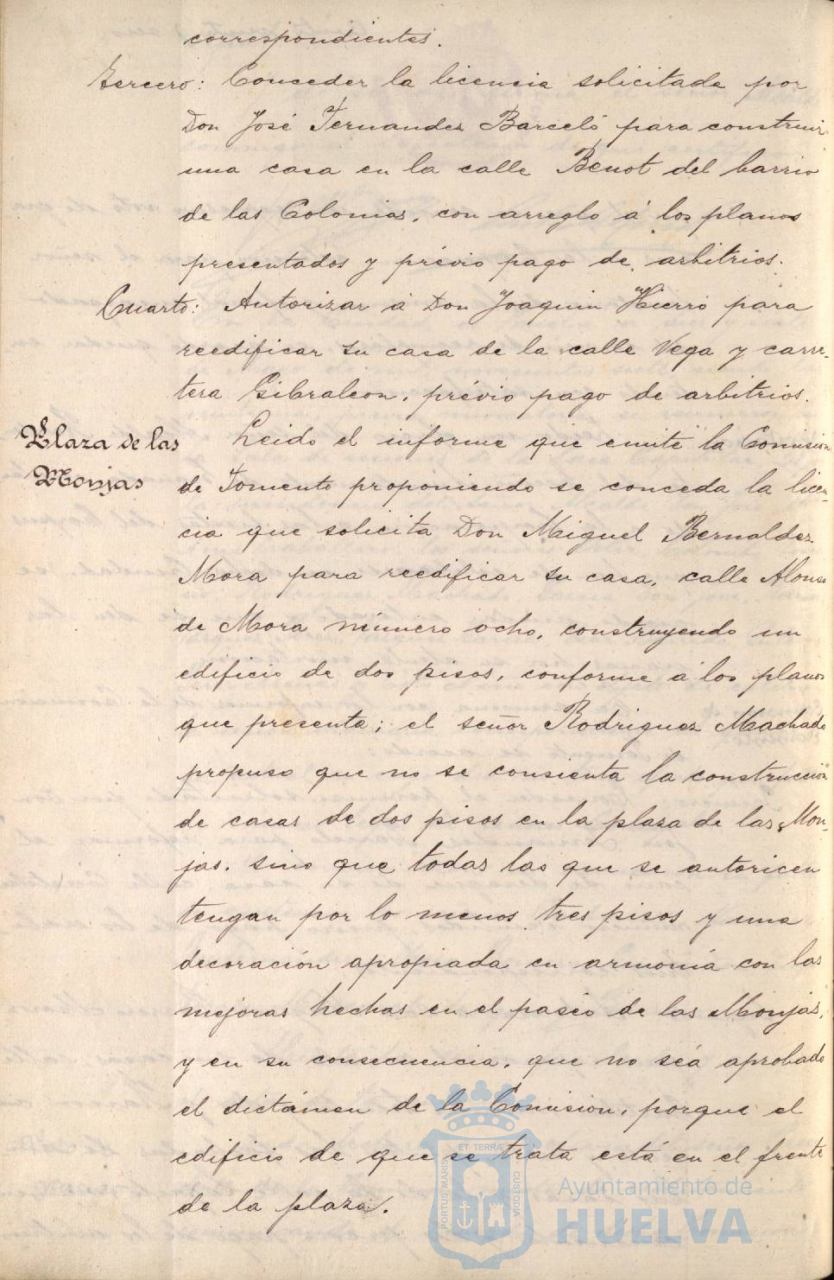 correspondientes.
Tercero: Conceder la licencia solicitada por
Don José Fernandez Barceló para construir
una casa en la calle Benot del barrio
de las Colonias, con arreglo á los planos
presentados y prévio pago de arbitrios.
Cuarto: Autorizar á Don Joaquin Hierro para
reedificar su casa de la calle Vega y carre-
tera Gibraleon, prévio pago de arbitrios.
Plaza de las
Monjas
Leido el informe que emite la Comisión
de Fomento proponiendo se conceda la licen-
cia que solicita Don Miguel Bernaldez
Mora para reedificar su casa, calle Alonso
de Mora número ocho, construyendo un
edificio de dos pisos, conforme á los planos
que presenta; el señor Rodriguez Machado
propuso que no se consienta la construcción
de casas de dos pisos en la plaza de las Mon-
jas, sino que todas las que se autoricen
tengan por lo menos tres pisos y una
decoración apropiada en armonía con las
mejoras hechas en el paseo de las Monjas,
y en su consecuencia, que no seá aprobado
el dictámen de la Comision, porque el
edificio de que se trata está en el frente
de la plaza.
PORTUS MARIS ET TERRÆ CUSTODIA
Ayuntamiento de
HUELVA